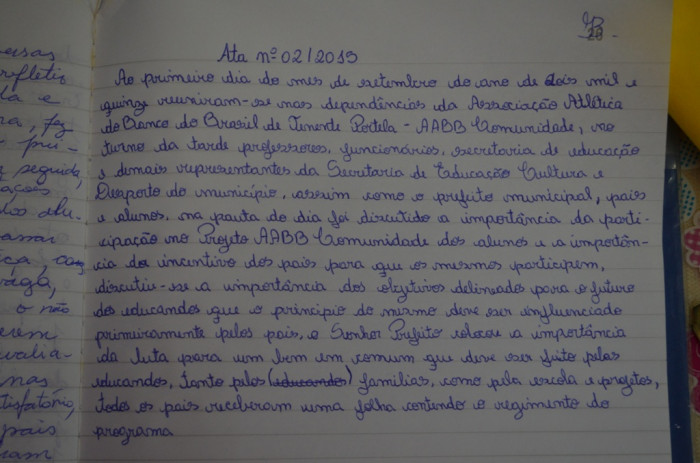 20
Ata nº 02/2015
Ao primeiro dia do mes de setembro do ano de dois mil e
quinze reuniram-se nas dependências da Associação Atlética
do Banco do Brasil de Tenente Portela - AABB Comunidade, no
turno da tarde professores, funcionários, secretaria de educação
e demais representantes da Secretaria de Educação Cultura e
Desporto do município, assim como o prefeito municipal, pais
e alunos, na pauta do dia foi discutido a importância da parti-
cipação no Projeto AABB Comunidade dos alunos e a importân-
cia do incentivo dos pais para que os mesmos participem,
discutiu-se a importância dos objetivos delineados para o futuro
dos educandos que o principio do mesmo deve ser influenciado
primeiramente pelos pais, o Senhor Prefeito colocou a importância
da luta para um bem em comum que deve ser feito pelos
educandos, tanto pelos (educandos) familias, como pela escola e projetos,
todos os pais receberam uma folha contendo o regimento do
programa
refletis
da e
ra, fez
seguida,
ações
dos alu-
o não
erem
avalia-
nas
tisfatório,
pais